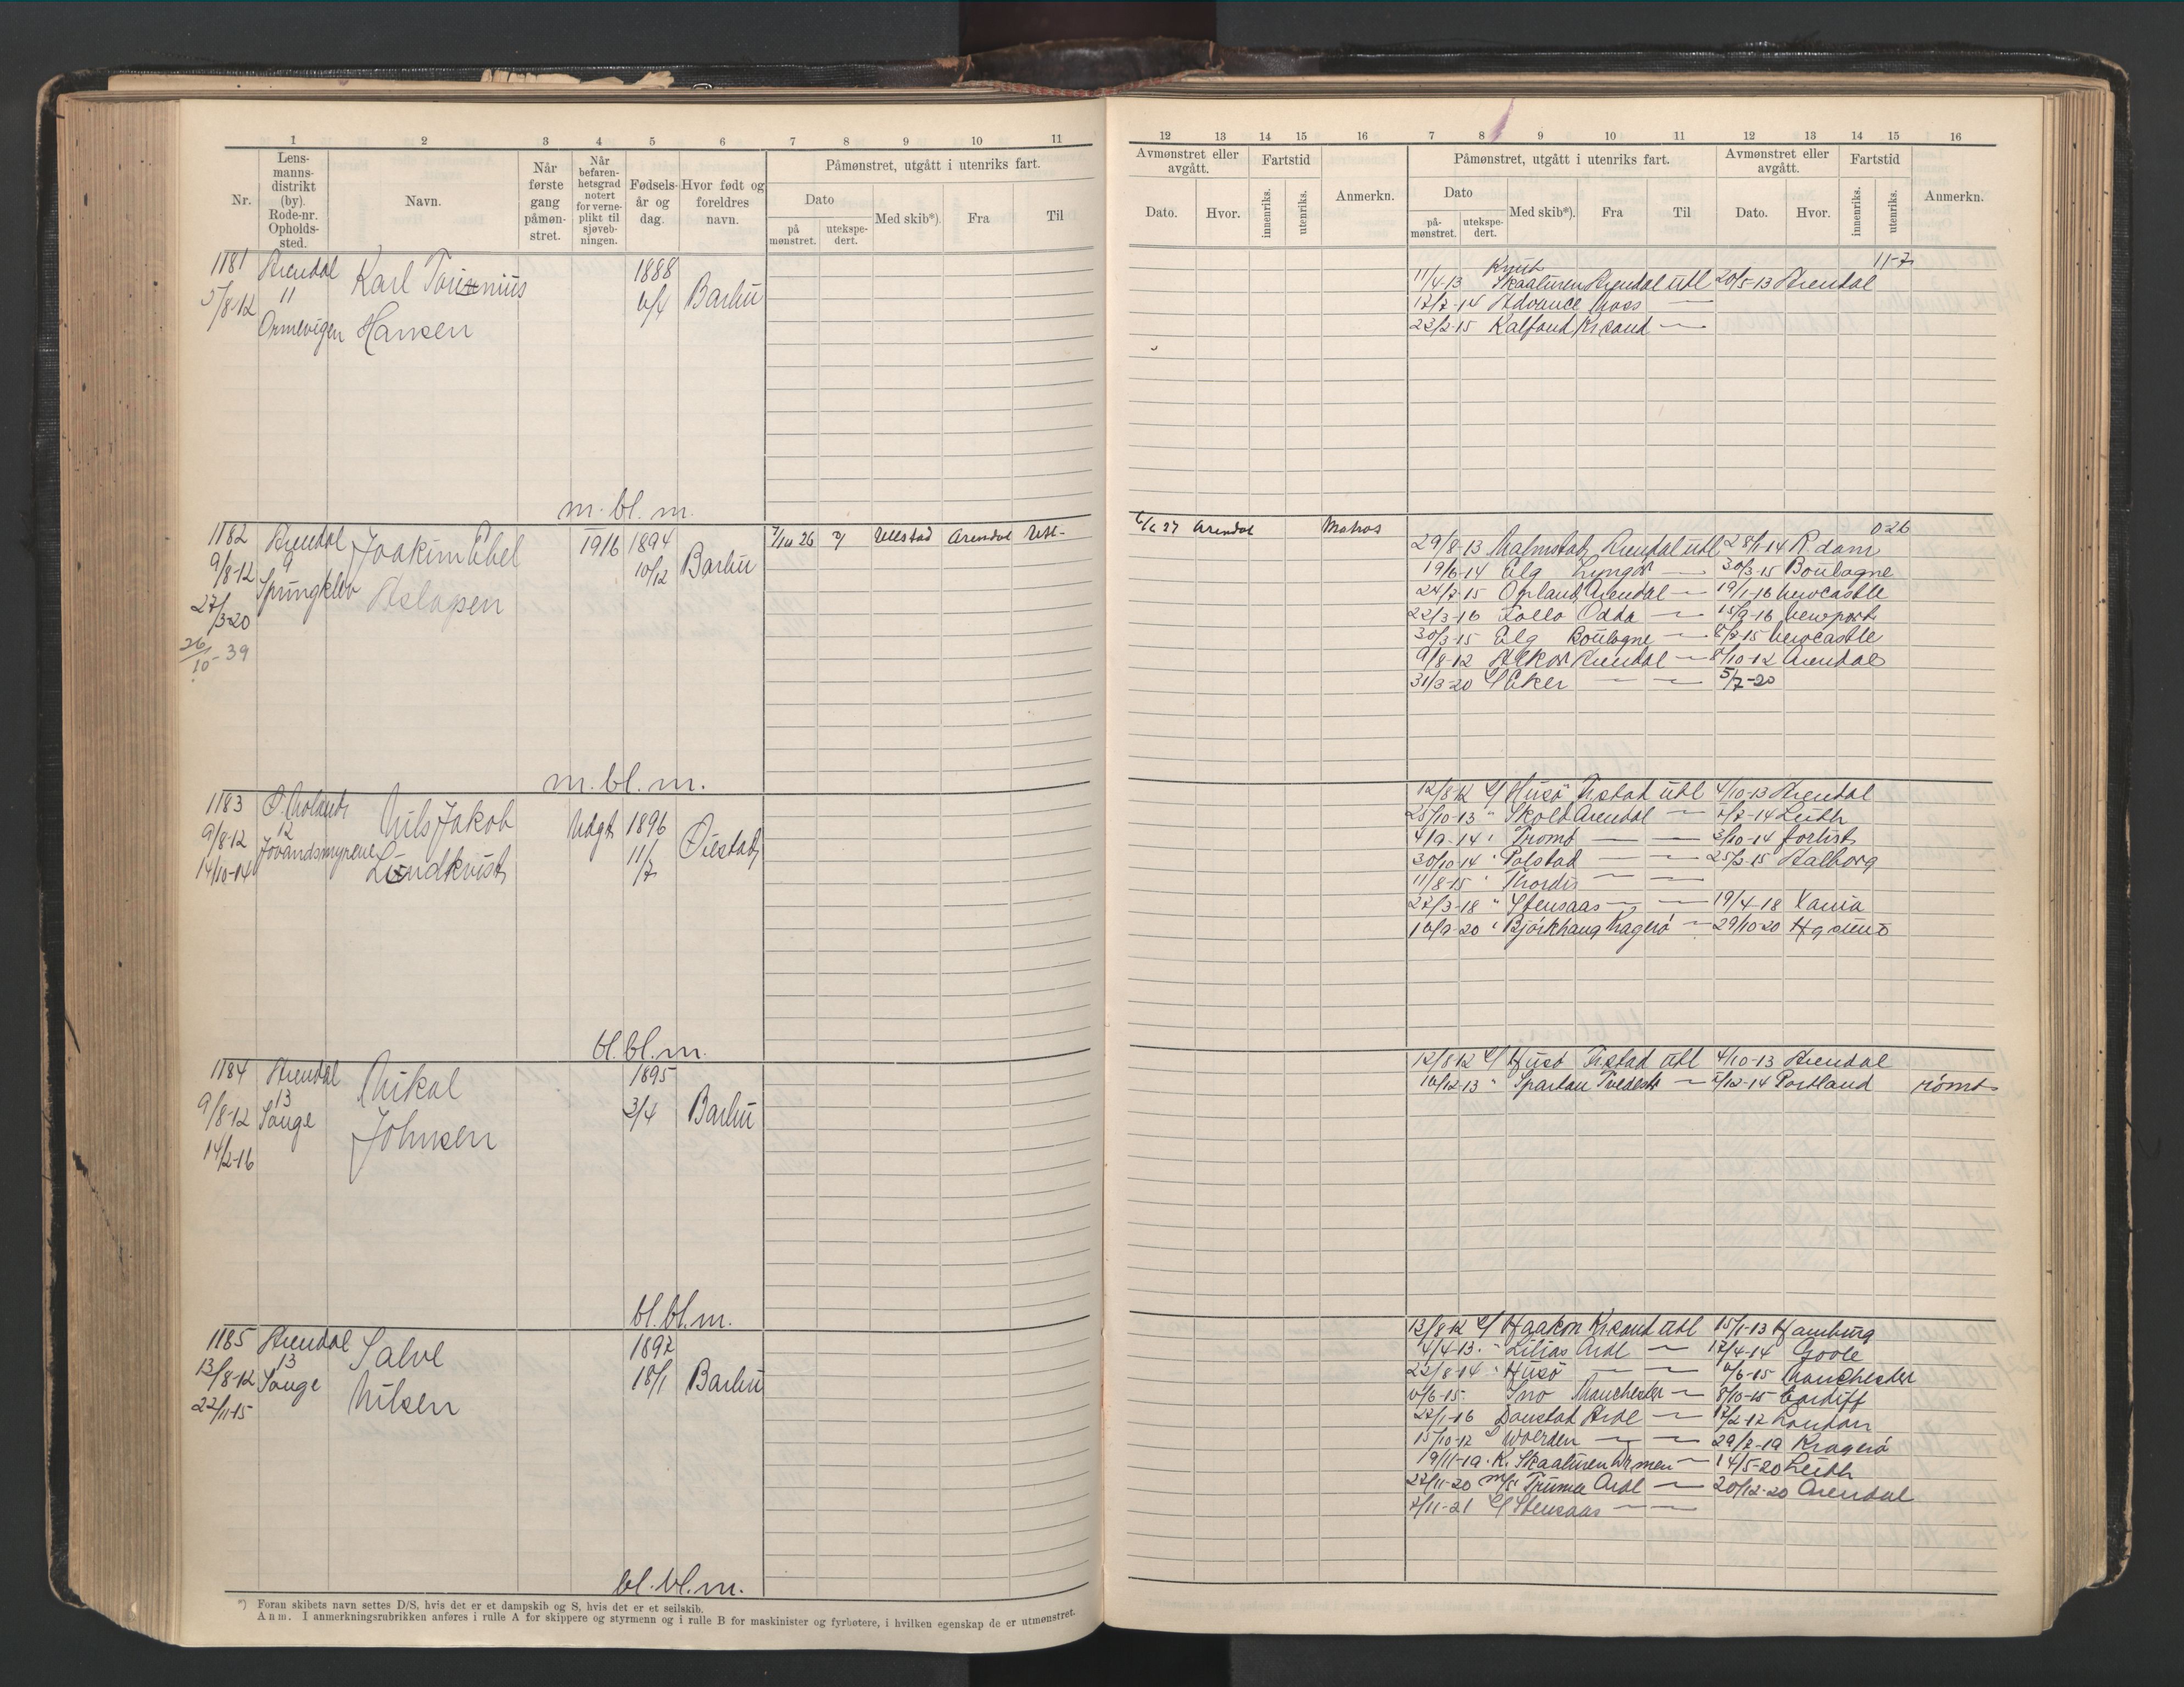 1 2 3 4 5 6 7 8 9 10 11
Nr.
Lens-
manns-
distrikt
(by).
Rode-nr.
Opholds-
sted.
Navn.
Når
første
gang
påmøn-
stret.
Når
befaren-
hetsgrad
notert
for verne-
plikt til
sjøveb-
ningen.
Fødsels-
år og
dag.
Hvor født og
foreldres
navn.
Påmønstret, utgått i utenriks fart.
Dato
på
mønstret.
utekspe-
dert.
Med skib*).
Fra
Til
1181 Arendal Karl
5/8-12 11
Ormevigen Hansen
1888
6/4 Barbu
m. bl. m.
1182 Arendal Joakim Abel 1916 1894
9/8-12 9
Springklev Aslaksen
10/12 Barbu
27/3-20
26/10-39
7/10 26 Ullstad Arendal Utl-
m. bl. m.
1183 Ø. Moland Nils Jakob Udgt 1896
9/8-12 12
Jovandsmyrene Lindkvist
14/10-14
11/7 Øiestad
bl. bl. m.
1184 Arendal Nikal 1895
9/8-12 13
Songe Johnsen
3/4 Barbu
14/2-16
bl. bl. m.
1185 Arendal Salve 1897
13/8-12 13
Songe Nilsen
18/1 Barbu
22/11-15
bl. bl. m.
*) Foran skibets navn settes D/S, hvis det er et dampskib og S, hvis det er et seilskib.
Anm. I anmerkningsrubrikken anføres i rulle A for skippere og styrmenn og i rulle B for maskinister og fyrbøtere, i hvilken egenskap de er utmønstret.
12 13 14 15 16 7 8 9 10 11 12 13 14 15 16
Avmønstret eller
avgått.
Dato.
Hvor.
Fartstid
innenriks.
utenriks.
Anmerkn.
Påmønstret, utgått i utenriks fart.
Dato
på-
mønstret.
utekspe-
dert.
Med skib*).
Fra
Til
Avmønstret eller
avgått.
Dato.
Hvor.
Fartstid
innenriks.
utenriks.
Anmerkn.
11-7
Knut
11/4-13 Skaaluren Arendal utl 20/5-13 Arendal
17/7-14 Advance Moss —
22/2-15 Kalfond Krsand —
6/6 27 Arendal Matros
0-26
29/8-13 Malmstad Arendal utl 28/1-14 R.dam
19/6-14 Elg Lyngør — 30/3-15 Boulogne
24/7-15 Opland Arendal — 19/1-16 Newcastle
22/3-16 Follo Odda — 15/9-16 Newport
30/3-15 Elg Boulogne — Newcastle
9/8-12 Alkor Arendal — 8/10-12 Arendal
31/3-20 S/ Eker — — 5/7-20
12/8-12 S/ Husø Trstad utl 4/10-13 Arendal
25/10-13 " Skold Arendal — 7/7-14 Leith
4/9-14 " Tromø — — 3/10-14 forlist
30/10-14 " Polstad — — 25/2-15 Aalborg
11/8-15 " Thordis — —
27/3-18 " Stensaas — — 19/4-18 Xania
16/9-20 " Bjørkhaug Kragerø — 29/10-20 Hgsund
12/8-12 S/ Husø Trstad utl 4/10-13 Arendal
16/12-13 " Spartan Tvedestr — 5/12-14 Portland rømt
13/8-12 S/ Haakon Krsand utl 15/1-13 Hamburg
4/4-13 " Lilias Ardl — 17/4-14 Goole
22/8-14 " Husø — — 6/6-15 Manchester
6/6-15 Ino Manchester — 8/10-15 Cardiff
22/1-16 Daustad Ardl — London
15/10-17 Woerden — — 29/7-19 Kragerø
19/11-19 K. Skaaluren Drmen — 14/5-20 Leith
22/11-20 m/s Truma Ardl — 20/12-20 Arendal
7/11-21 S/ Stensaas — —